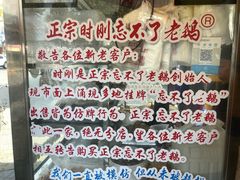 正宗时刚忘不了老鹅®
敬告各位新老客户：
时刚是正宗忘不了老鹅创始人
现市面上涌现多地挂牌“忘不了老鹅”
出售皆为仿牌行为。正宗忘不了老鹅
此一家，绝无分店，望各位新老客户
相互转告购买正宗忘不了老鹅。
我们一直被模仿